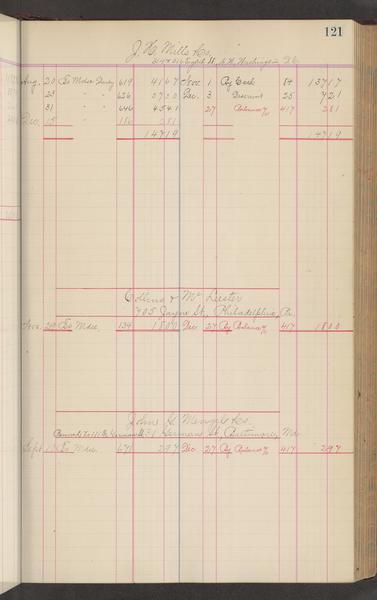 121
J. H. Mills & Co.
St. N. W. Washington D. C.
Aug. 20 To Mdse. 619 4167 Nov. 1 By Cash 84 13717
23 " " 626 5730 Dec. 3 Discount 25 721
31 " " 646 4541 27 Balance 417 281
Dec. 15 " 186 281
14719 14719
Collins & McLeester
705 Jayne St., Philadelphia, Pa.
Nov. 20 To Mdse. 134 1800 Dec. 27 By Balance 417 1800
John G. Mengel & Co.
Removed to 111 E. German St., Baltimore, Md.
Sept. To Mdse. 671 297 Dec. 27 By Balance 417 297